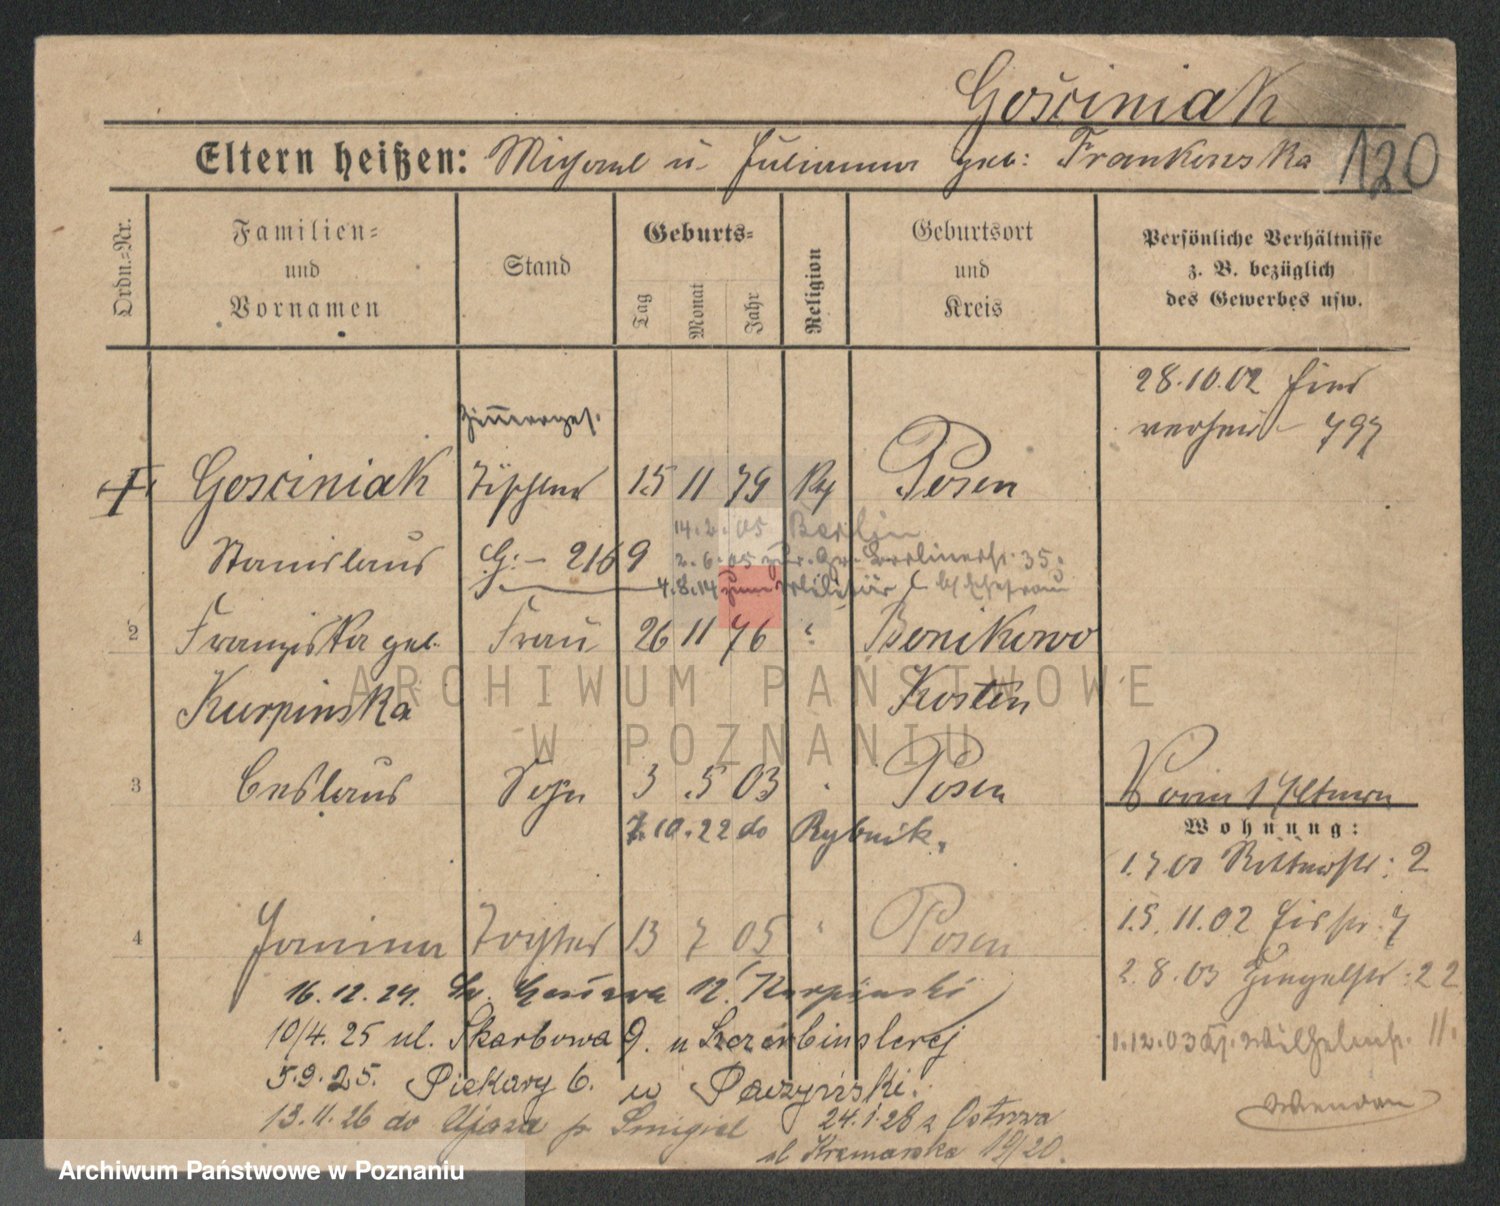 Gościniak
Eltern heißen: Michael u. Julianna geb: Frankowska 120
Ordn.-Nr.
Familien-
und
Vornamen
Stand
Geburts-
Tag
Monat
Jahr
Religion
Geburtsort
und
Kreis
Persönliche Verhältnisse
z. B. bezüglich
des Gewerbes usw.
28.10.02 hier
verheir 797
Gościniak Tischler 15 11 79 Posen
Stanislaus G: - 2169
14.2.05 Berlin
2.6.05 zur. Berlinerstr. 35.
4.8.14 zum Militär
2 Franziska geb. Frau 26 11 76 " Bonikowo
Kurpinska Kosten
ARCHIWUM PAŃSTWOWE
W POZNANIU
3 Ceslaus Sohn 3 5 03 " Posen
7.10.22 do Rybnik.
Wohnung:
1.7.01 Ritterstr: 2
15.11.02 7
2.8.03 22
1.12.03 Wilhelmstr. 11.
4 Janina Tochter 13 7 05 " Posen
16.12.24. 12. Kurpiński
10/4.25 ul. Skarbowa 9. u
5.9.25. Piekary 6. u
13.11.26 do Śmigiel
24.1.28 z Ostrowa
ul Kramarska 19/20.
Archiwum Państwowe w Poznaniu